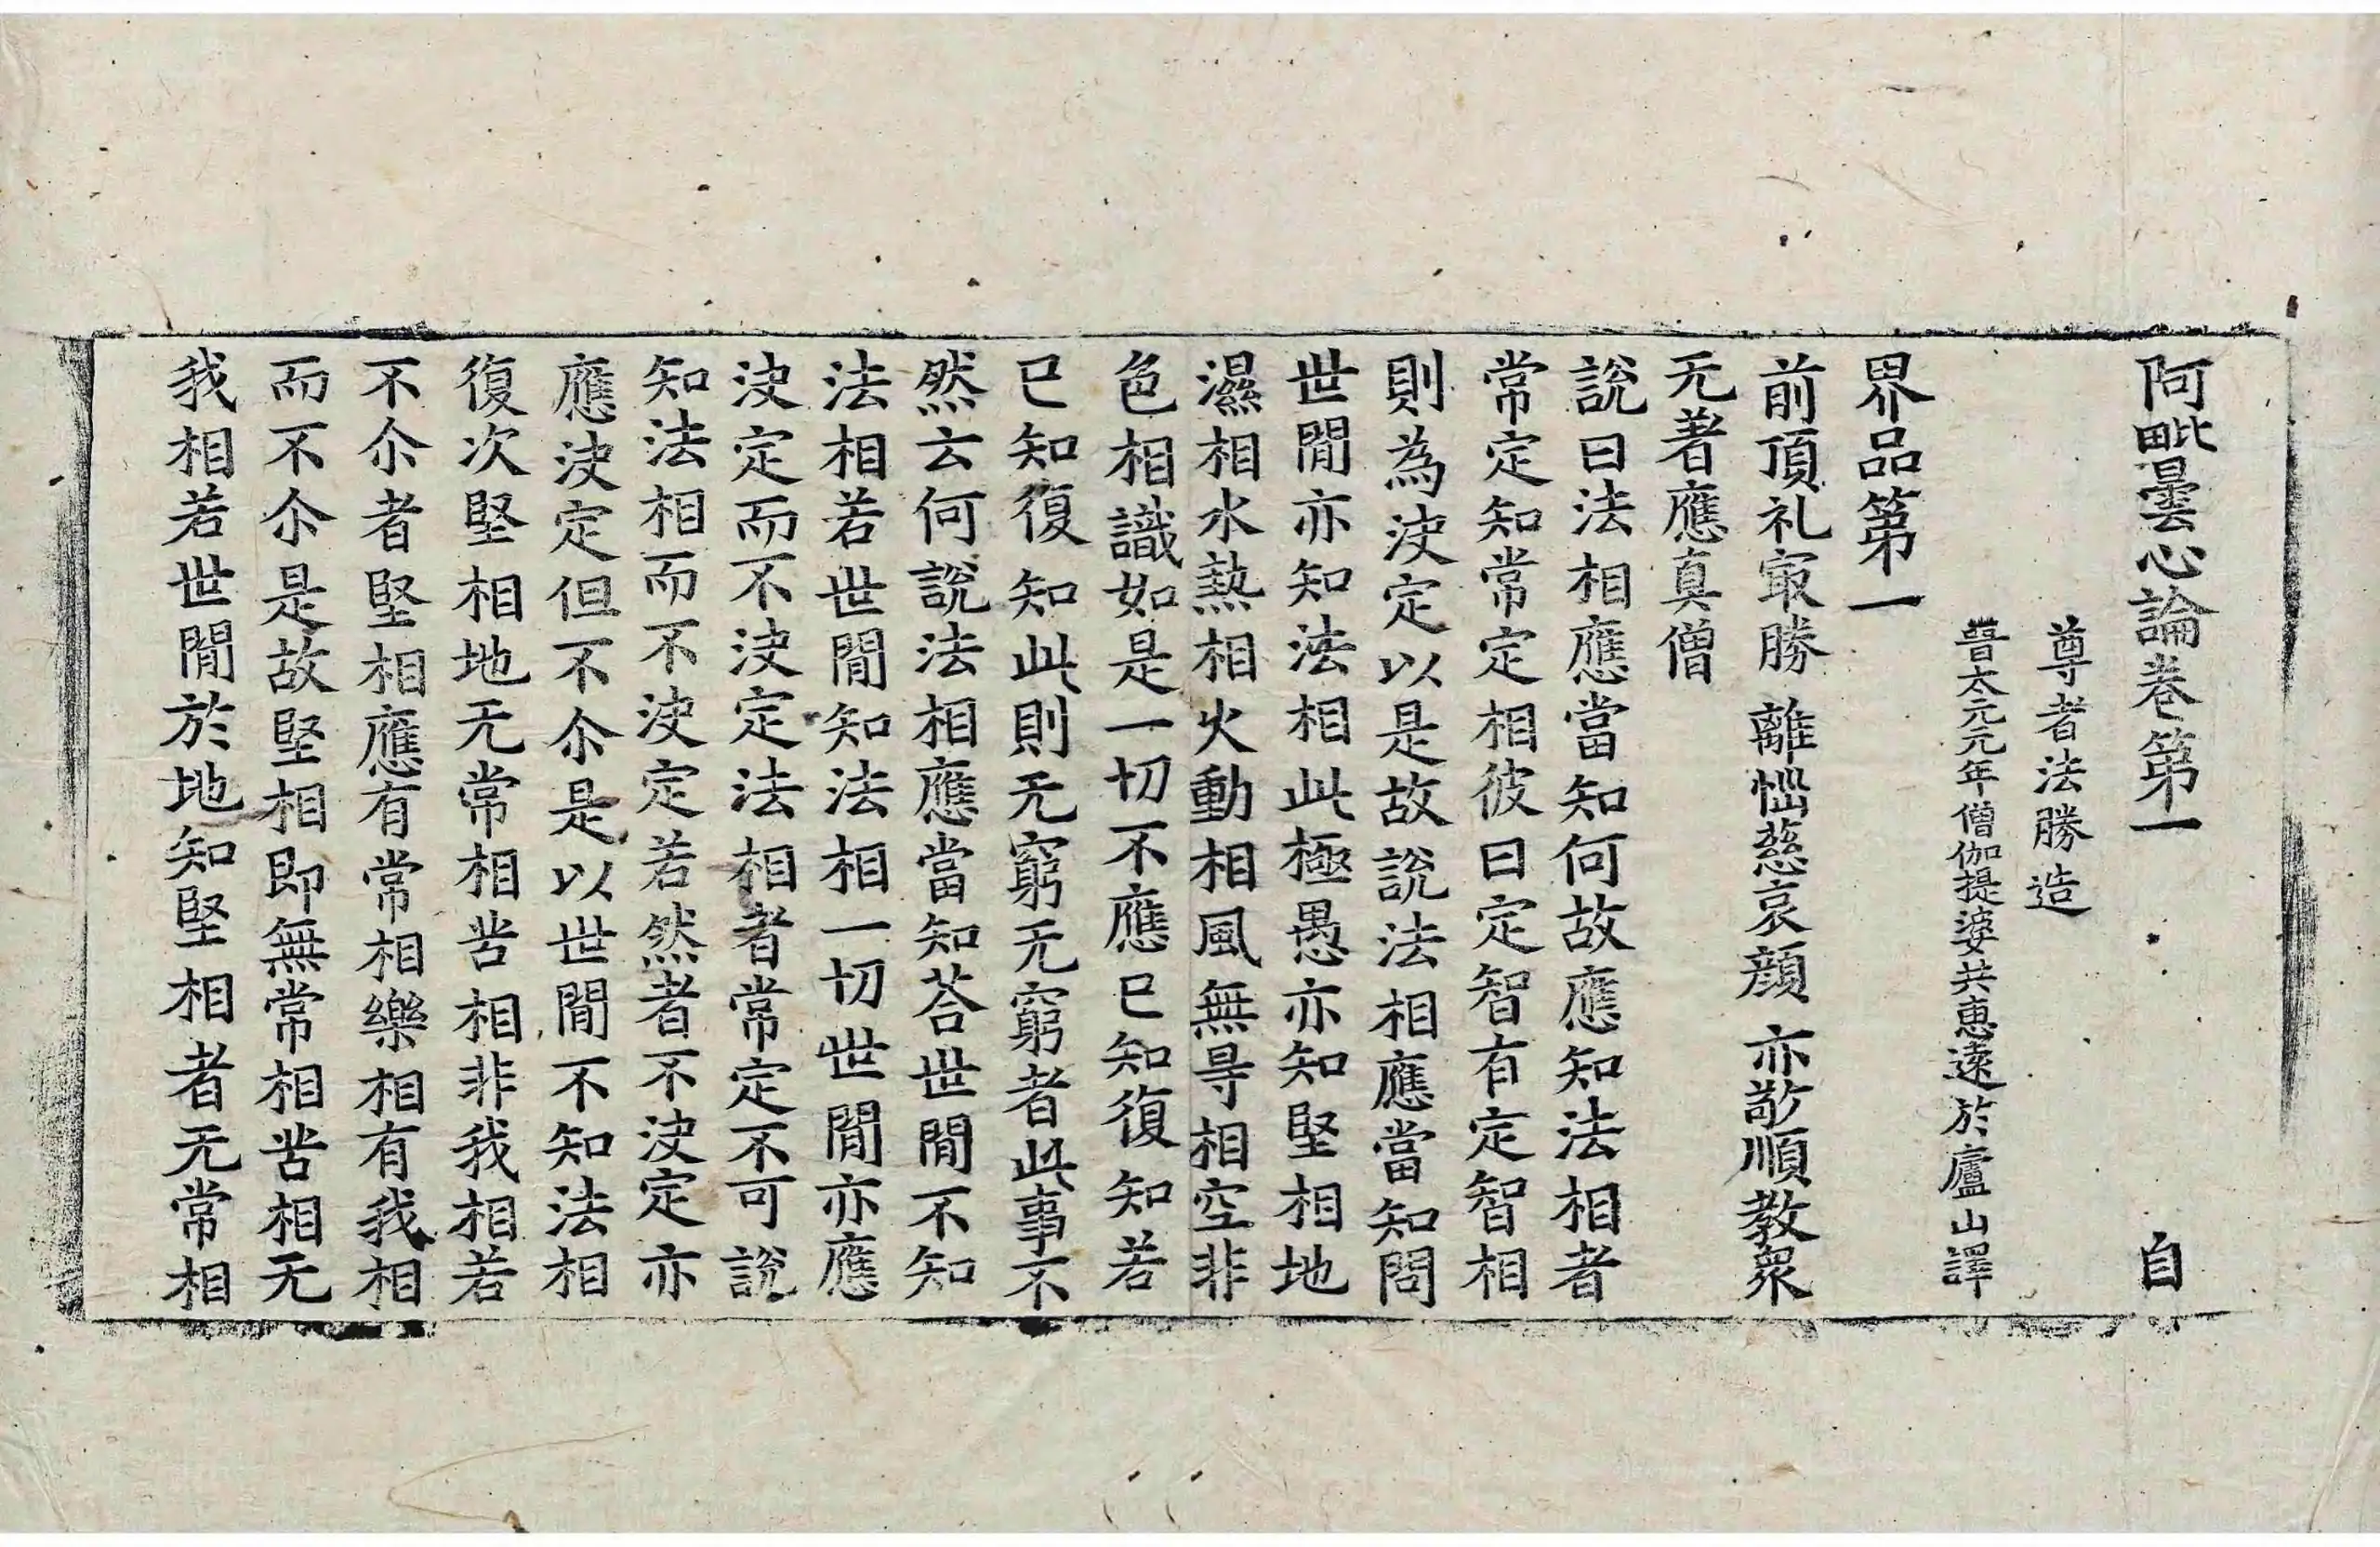 阿毗曇心論卷第一 自
尊者法勝造
晉太元元年僧伽提婆共惠遠於廬山譯
界品第一
前頂礼冣勝 離惱慈哀顔 亦敬順教衆
无著應真僧
說曰法相應當知何故應知法相者
常定知常定相彼曰定智有定智相
則為決定以是故說法相應當知問
世間亦知法相此極愚亦知堅相地
濕相水熱相火動相風無㝵相空非
色相識如是一切不應已知復知若
已知復知此則无窮无窮者此事不
然云何說法相應當知荅世間不知
法相若世間知法相一切世間亦應
決定而不決定法相者常定不可說
知法相而不決定若然者不決定亦
應決定但不尒是以世間不知法相
復次堅相地无常相苦相非我相若
不尒者堅相應有常相樂相有我相
而不尒是故堅相即無常相苦相无
我相若世間於地知堅相者无常相